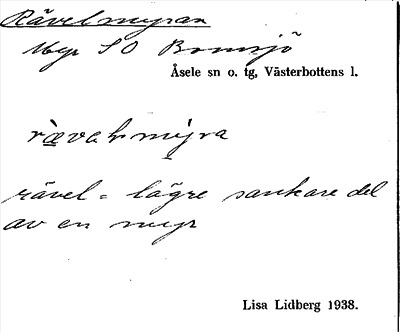 Rävelmyran
Myr SO Bomsjö
Åsele sn o. tg, Västerbottens l.
rävel = lägre sankare del
av en myr
Lisa Lidberg 1938.